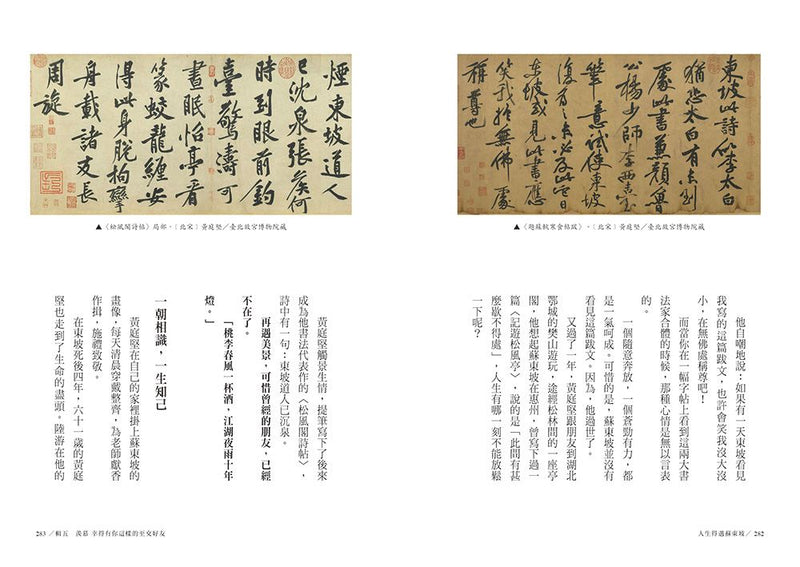 東坡此詩似李太白
猶恐太白有未到
處此書兼顏魯
公楊少師李西臺
筆意試使東坡
復為之未必及此它日
東坡或見此書應
笑我於無佛處
稱尊也
▲《題蘇軾寒食帖跋》,〔北宋〕黃庭堅/臺北故宮博物院藏
他自嘲地說,如果有一天東坡看見
我寫的這篇跋文,也許會笑我沒大沒
小,在無佛處稱尊吧!
而當你在一幅字帖上看到這兩大書
法家合體的時候,那種心情是無以言表
的。
一個隨意奔放,一個蒼勁有力,都
是一氣呵成。可惜的是,蘇東坡並沒有
看見這篇跋文。因為,他過世了。
又過了一年,黃庭堅跟朋友到湖北
鄂城的樊山遊玩,途經松林間的一座亭
閣,他想起蘇東坡在惠州,曾寫下過一
篇〈記遊松風亭〉,說的是「此間有甚
麼歇不得處」,人生有哪一刻不能放鬆
一下呢?
人生得遇蘇東坡/ 282
煙東坡道人
已沈泉張侯何
時到眼前釣
臺驚濤可
晝眠怡亭看
篆蛟龍纏安
得此身脫拘攣
舟載諸友長
周旋
▲《松風閣詩帖》局部,〔北宋〕黃庭堅/臺北故宮博物院藏
黃庭堅觸景生情,提筆寫下了後來
成為他書法代表作的〈松風閣詩帖〉,
詩中有一句:東坡道人已沉泉。
再遇美景,可惜曾經的朋友,已經
不在了。
「桃李春風一杯酒,江湖夜雨十年
燈。」
一朝相識,一生知己
黃庭堅在自己的家裡掛上蘇東坡的
畫像,每天清晨穿戴整齊,為老師獻香
作揖,施禮致敬。
在東坡死後四年,六十一歲的黃庭
堅也走到了生命的盡頭。陸游在他的
283 /輯五 羨慕 幸得有你這樣的至交好友